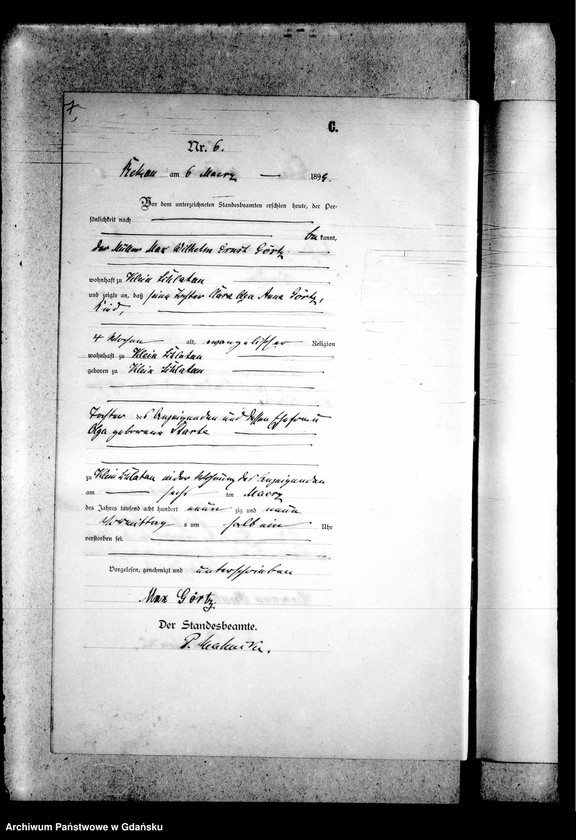 C.
Nr. 6.
am 6 Maerz 1899.
Vor dem unterzeichneten Standesbeamten erschien heute, der Per-
sönlichkeit nach
be kannt,
der Müller Max Wilhelm Ernst Görtz
wohnhaft zu Klein
und zeigte an, daß seine Tochter Clara Olga Anna Görtz,
Kind,
4 Wochen alt, evangelischer Religion
wohnhaft zu Klein
geboren zu Klein
Tochter des Anzeigenden und dessen Ehefrau
Olga geborene
zu Klein in der Wohnung des Anzeigenden
am sechs ten Maerz
des Jahres tausend acht hundert neun zig und neun
Vormittag s um halb ein Uhr
verstorben sei.
Vorgelesen, genehmigt und unterschrieben
Max Görtz
Der Standesbeamte.
Archiwum Państwowe w Gdańsku